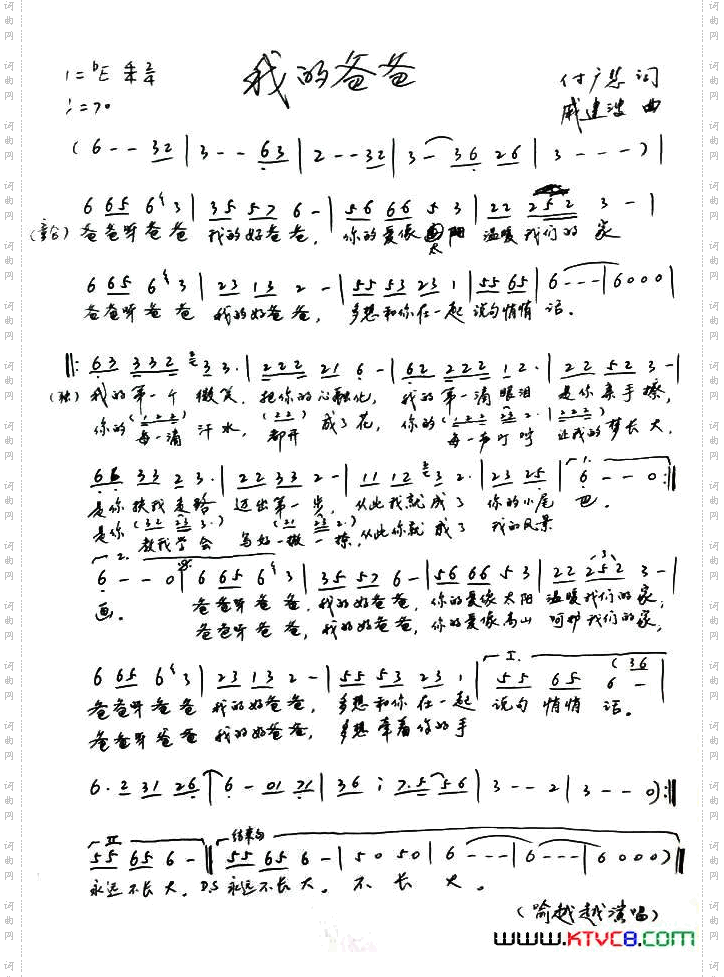 我的爸爸
1=♭E
♩=70
付广慧 词
戚建波 曲
(6 - - 32 | 3 - - 63 | 2 - - 32 | 3 - 36 26 | 3 - - - ) |
6 65 6 3 | 35 57 6 - | 56 66 5 3 | 22 252 3 - |
(童合) 爸爸呀爸爸 我的好爸爸, 你的爱像太阳 温暖我们的家
6 65 6 3 | 23 13 2 - | 55 53 23 1 | 55 65 | 6 - - - | 6000 |
爸爸呀爸爸 我的好爸爸, 多想和你在一起 说句悄悄话。
‖: 63 332 33. | 222 21 6 - | 62 222 12. | 22 52 3 - |
(独) 我的第一个微笑, 把你的心融化, 我的第一滴眼泪 是你亲手擦,
(122) (22) (122 23 2. | 222)
你的每一滴汗水, 都开成了花, 你的每一声叮咛 让我的梦长大,
66 33 23. | 22 33 2 - | 11 12 3 2. | 23 25 | 1. 6 - - 0 :‖
是你扶我走路 迈出第一步, 从此我就成了 你的小尾巴。
(32 23 3.) (21 23 2.)
是你教我学会 写好一撇一捺, 从此你就成了 我的风景
2.
6 - - 0 | 6 65 6 3 | 35 57 6 - | 56 66 5 3 | 22 252 3 - |
画。 爸爸呀爸爸, 我的好爸爸, 你的爱像太阳 温暖我们的家,
爸爸呀爸爸, 我的好爸爸, 你的爱像高山 呵护我们的家,
I. (36
6 65 6 3 | 23 13 2 - | 55 53 23 1 | 55 65 6 - |
爸爸呀爸爸 我的好爸爸, 多想和你在一起 说句悄悄话。
爸爸呀爸爸 我的好爸爸, 多想牵着你的手
6. 2 31 26 | 6 - 01 71 | 36 i 7.5 56 | 3 - - 2 | 3 - - 0) :‖
II 结束句
55 65 6 - ‖ 55 65 6 - | 50 50 | 6 - - - | 6 - - - | 6000) ‖
永远不长大。 D.S 永远不长大。 不长大。
(喻越越演唱)
www.KTVC8.com
词曲网